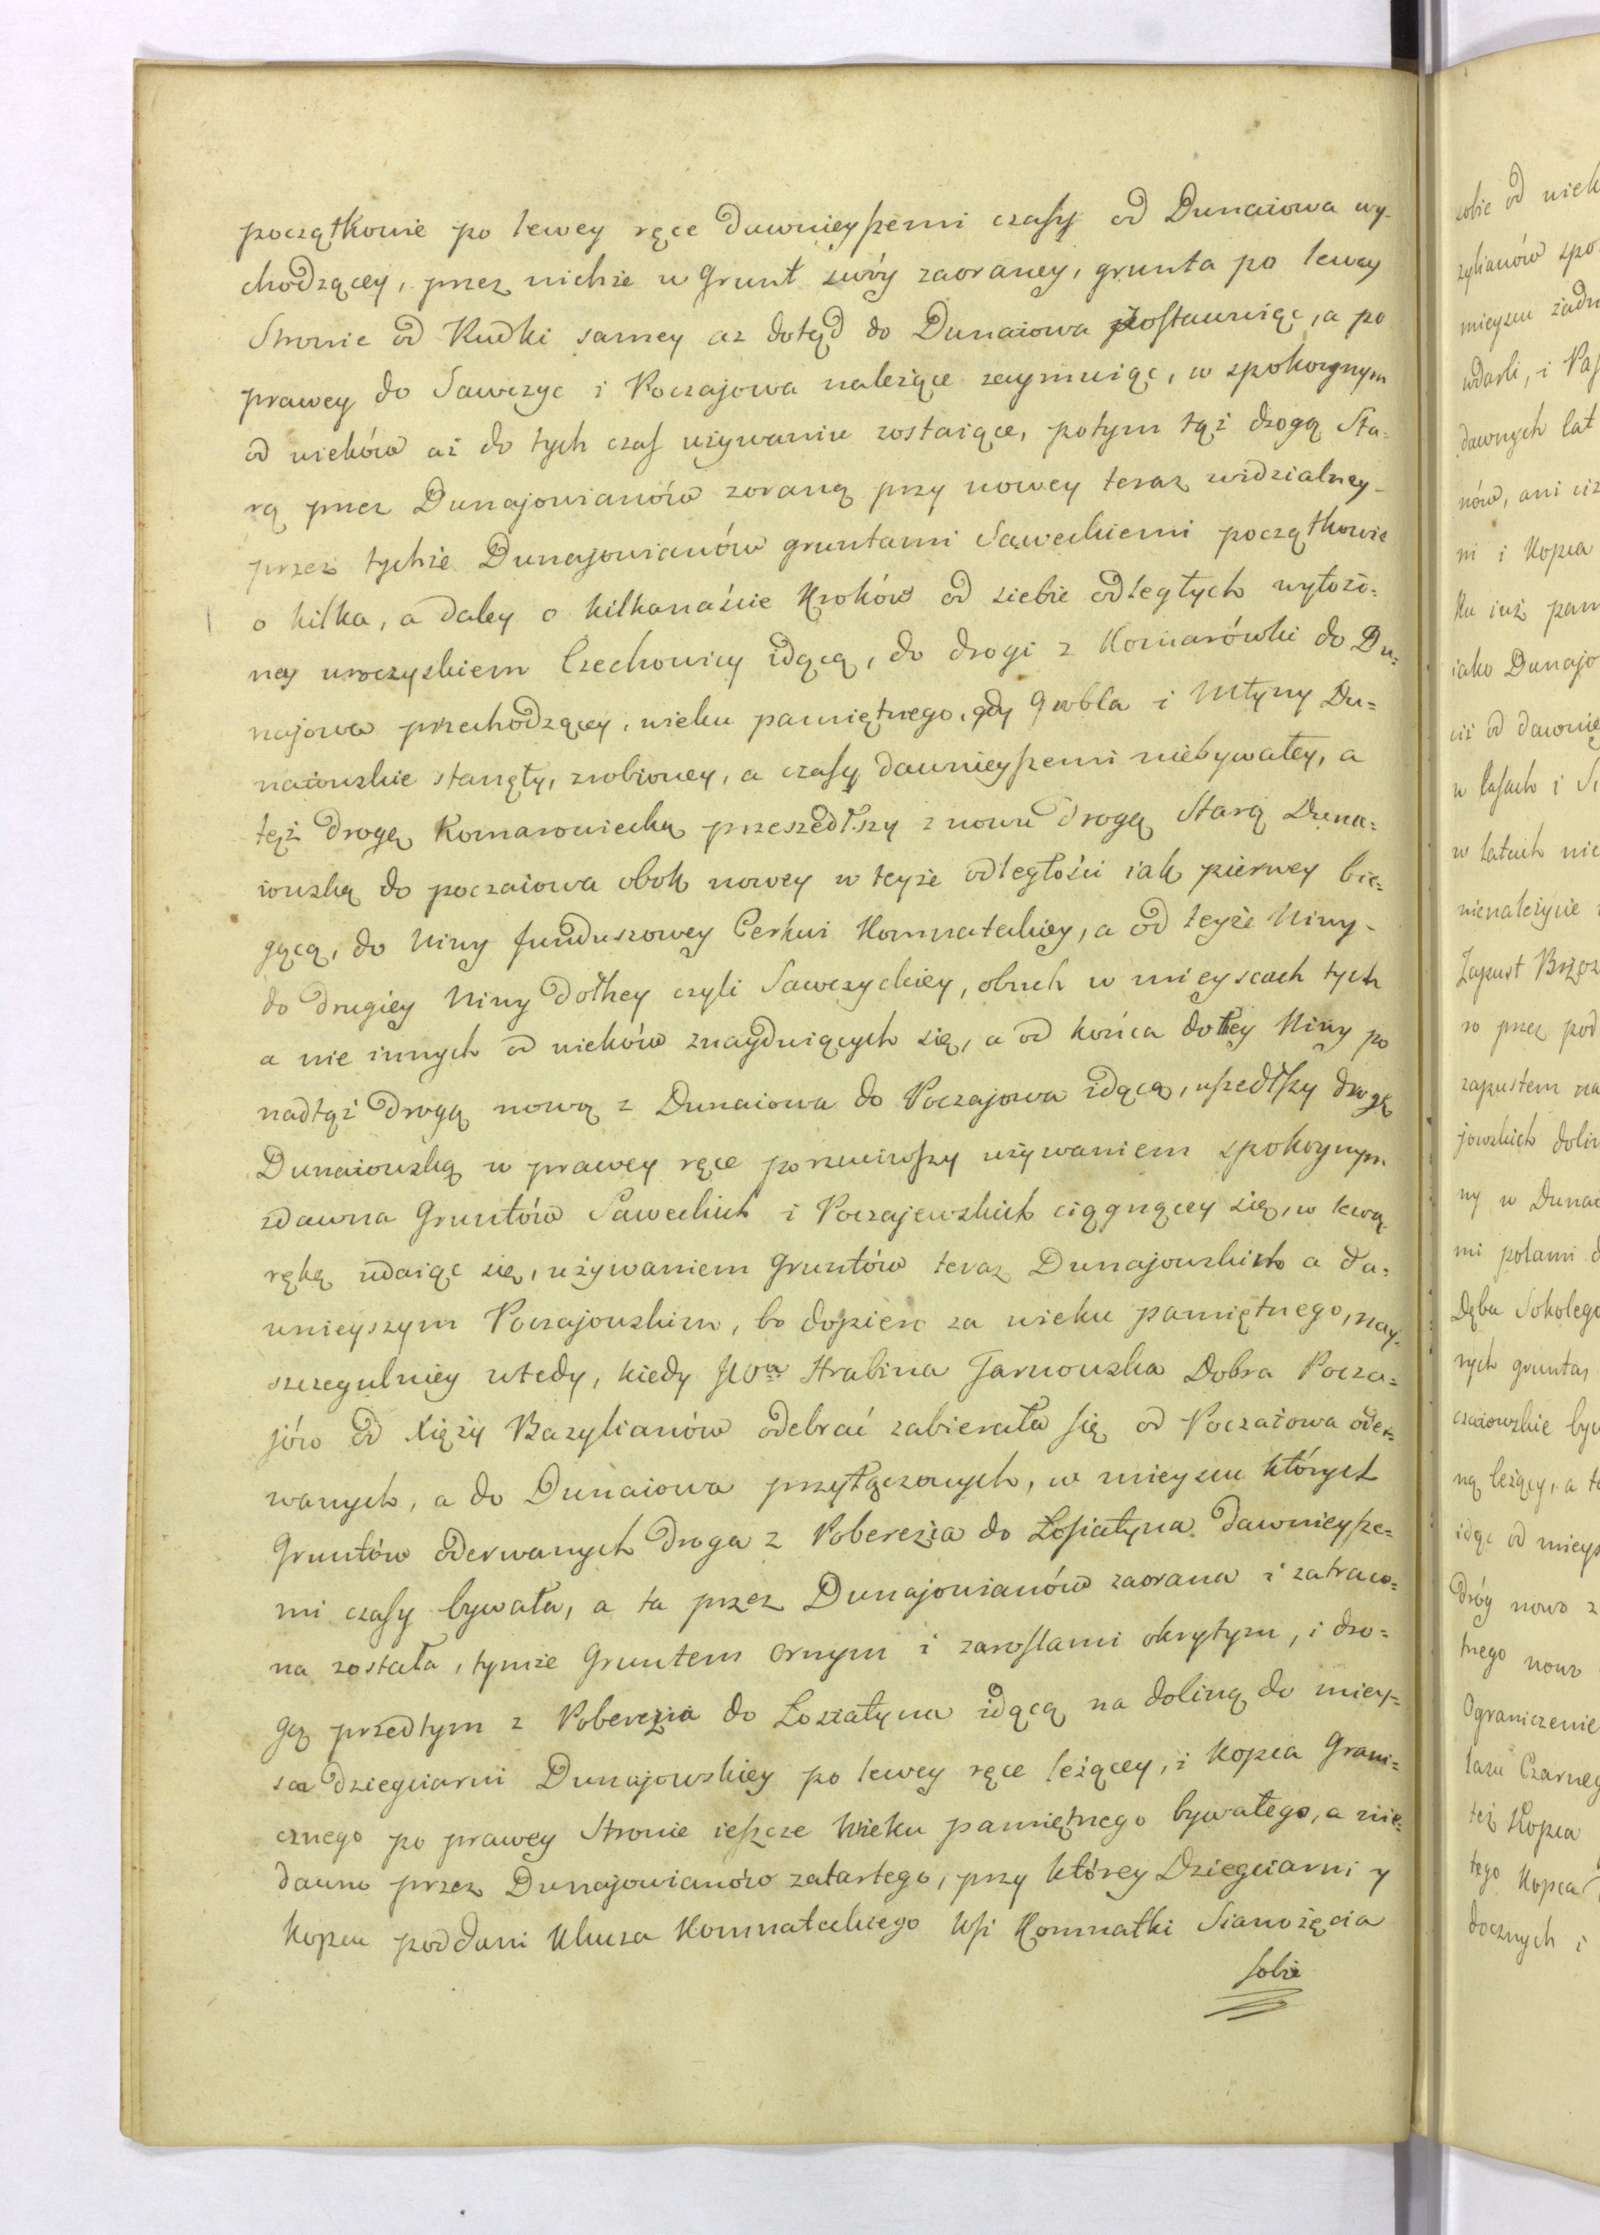 początkowie po lewey ręce dawnieyszemi czasy od Dunaiowa wy-
chodzącey, przez nichże w Grunt swóy zaoraney, grunta po lewey
Stronie od Rudki samey az dotąd do Dunaiowa zostawuiąc, a po
prawey do Sawczyc i Poczajowa należące zaymuiąc, w spokoynym
od wieków aż do tych czas używaniu zostaiące, potym tąż drogą Sta=
rą przez Dunajowianów zoraną przy nowey teraz widzialney
przez tychże Dunajowianów gruntami Saweckiemi początkowie
o kilka, a daley o kilkanaście Kroków od siebie odległych wyłożo=
ney uroczyskiem Czechowicy idącą, do drogi z Komarówki do Du=
najowa przechodzącey, wieku pamiętnego, gdy Grobla i Młyny Du=
naiowskie stanęły, zrobioney, a czasy dawnieyszemi niebywałey, a
tęż drogę Komarowiecką przeszedłszy znowu drogą Starą Duna=
iowską do poczaiowa obok nowey w teyże odległości iak pierwey bie=
gącą, do Niwy funduszowey Cerkwi Komnateckiey, a od teyże Niwy
do drugiéy Niwy Dołhey czyli Sawczyckiey, obuch w mieyscach tych
a nie innych od wieków znayduiących się, a od końca dołhey Niwy po
nadtąż drogą nową z Dunaiowa do Poczajowa idącą, uszedłszy drogę
Dunaiowską w prawey ręce porzuciwszy używaniem spokoynym
zdawna Gruntów Saweckich i Poczajewskich ciągnącey się, w lewą
rękę udaiąc się, używaniem Gruntów teraz Dunajowskich a da=
wnieyszym Poczajowskim, bo dopiero za wieku pamiętnego, nay=
szczegulniey wtedy, kiedy JWa Hrabina Tarnowska Dobra Pocza=
jów od Xięży Bazylianów odebrać zabierała się od Poczaiowa oder=
wanych, a do Dunaiowa przyłączonych, w mieyscu których
Gruntów oderwanych droga z Pobereżia do Łosiatyna dawnieysze=
mi czasy bywała, a ta przez Dunajowianów zaorana i zatraco=
na została, tymże Gruntem ornym i zaroslami okrytym, i dro=
gą przedtym z Pobereżia do Łosiatyna idącą na dolinę do miey=
sca dziegciarni Dunajowskiey po lewey ręce leżącey, i Kopca Grani=
cznego po prawey Stronie ieszcze wieku pamiętnego bywałego, a nie=
dawno przez Dunajowianów zatartego, przy którey Dziegciarni y
Kopcu poddani Klucza Komnateckiego Wsi Komnatki Sianożęcia
sobie